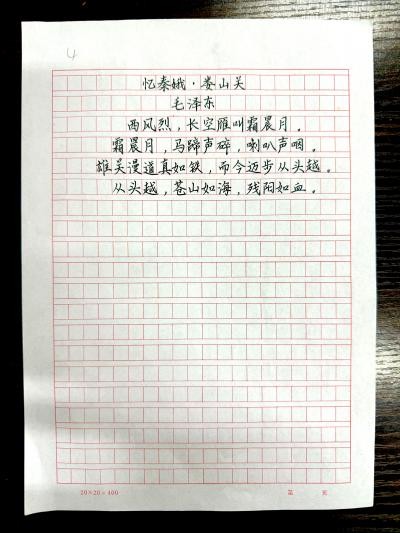 4
忆秦娥·娄山关
毛泽东
西风烈，长空雁叫霜晨月。
霜晨月，马蹄声碎，喇叭声咽。
雄关漫道真如铁，而今迈步从头越。
从头越，苍山如海，残阳如血。
20×20=400
第 页